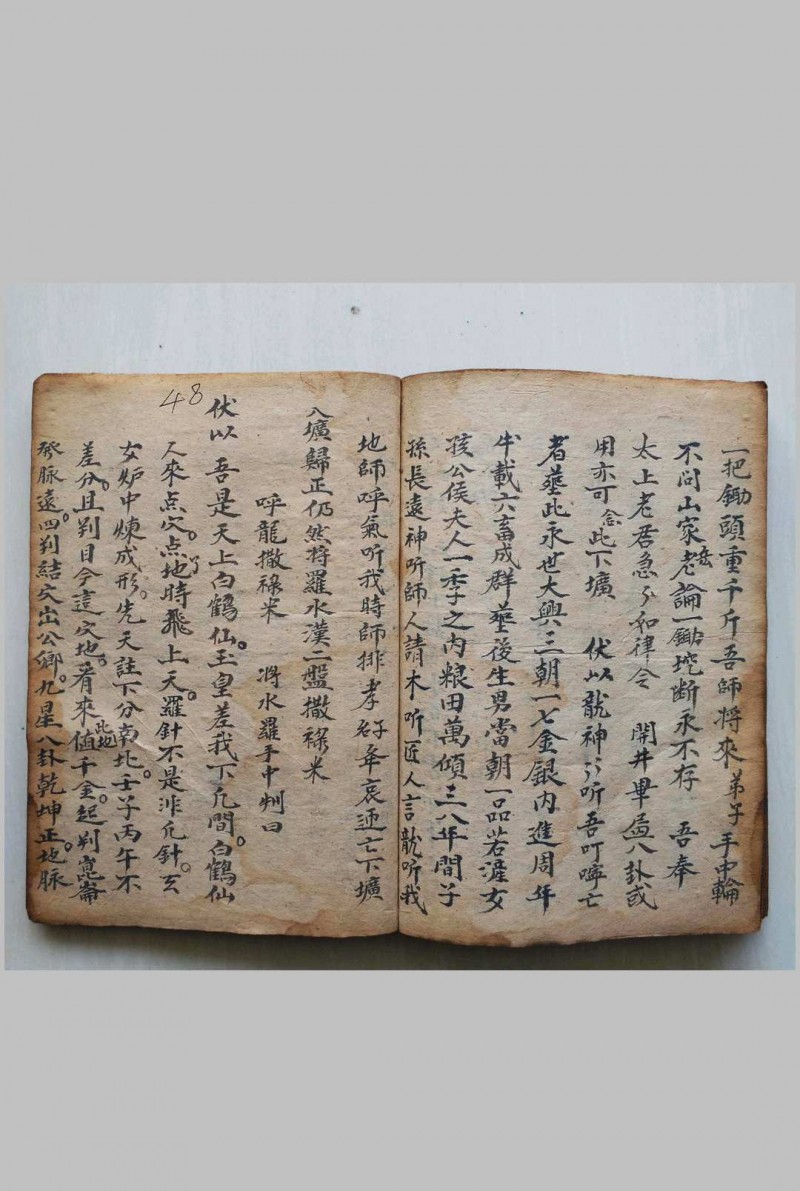 一把鋤頭重千斤吾師將來弟子手中輪
不问山家老玄論一鋤挖断永不存　吾奉
太上老君急々如律令　開井畢畐八卦或
用亦可念此下壙　伏以龍神々听吾叮嚀亡
者塟此永世大興三朝一七金銀内進周年
半載六畜成群塟後生男當朝一品若産女
孩公侯夫人一季之内粮田萬傾三八年間子
孫長遠神听師人請木听匠人言龍听我
地師呼氣听我時師排孝奉哀迊亡下壙
入壙歸正仍然将羅水漢二盤撒禄米
呼龍撒祿米　将水羅手中判曰
48
伏以　吾是天上白鶴仙。玉皇差我下凢間。白鶴仙
人來点穴。点了地時飛上天。羅針不是非凢針。玄
女妒中煉成形。先天註下分南北。壬子丙午不
差分。且判目今這穴地。看來此地值千金。起判崑崙
發脉遠。四判結穴出公卿。九星八卦乾坤正。地脉